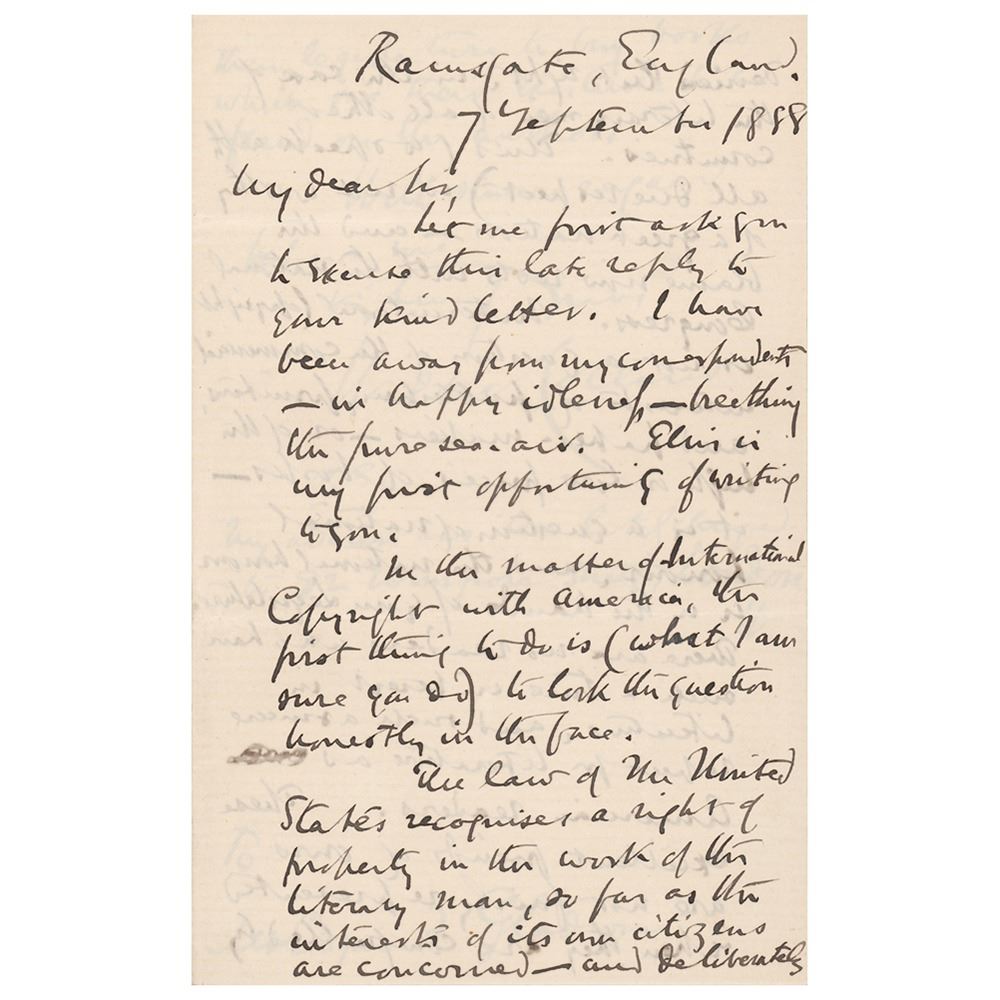 Ramsgate, England.
7 September 1888
My dear Sir,
Let me first ask you
to excuse this late reply to
your kind letter. I have
been away from my correspondents
— in happy idleness, — breathing
the pure sea-air. This is
my first opportunity of writing
to you.
In the matter of International
Copyright with America, the
first thing to do is (what I am
sure you do) to look the question
honestly in the face.
The law of the United
States recognises a right of
property in the work of the
literary man, so far as the
interests of its own citizens
are concerned — and deliberately